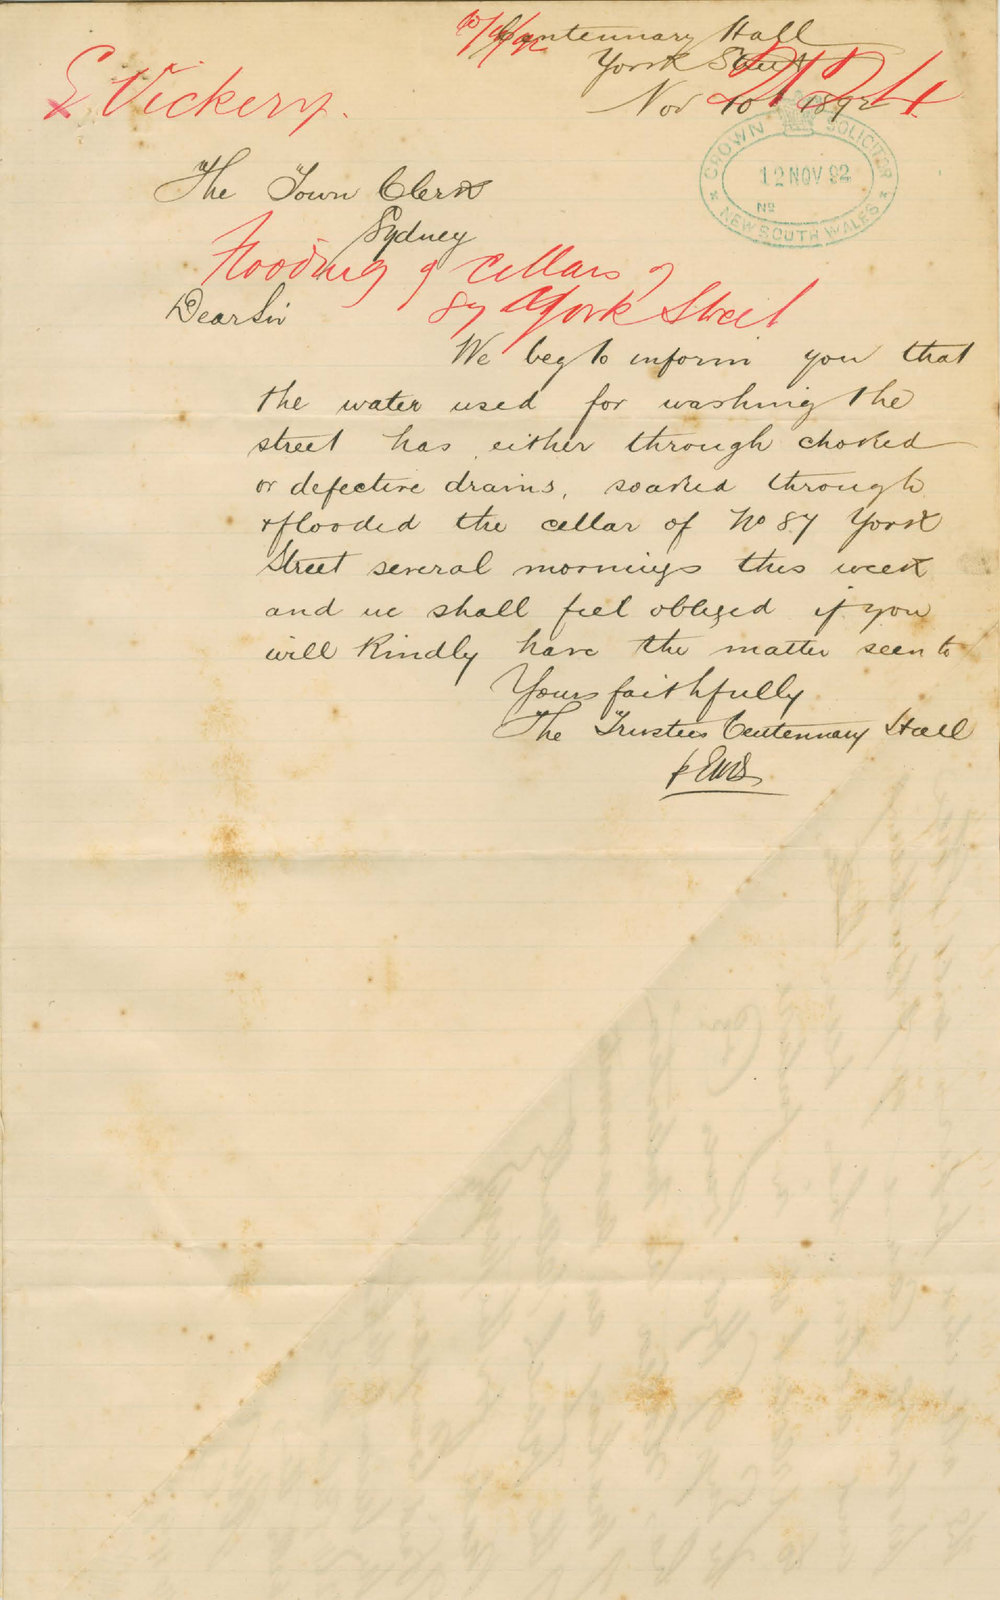 10/11/92
Centennary Hall
York Street
E Vickery.
Nov 10th 1892
CROWN SOLICITOR
12 NOV 92
No
NEW SOUTH WALES
The Town Clerk
Sydney
Flooding of Cellars of
87 York Street
Dear Sir
We beg to inform you that
the water used for washing the
street has either through choked
or defective drains, soaked through
& flooded the cellar of No 87 York
Street several mornings this week
and we shall feel obliged if you
will kindly have the matter seen to
Yours faithfully
The Trustees Centennary Hall